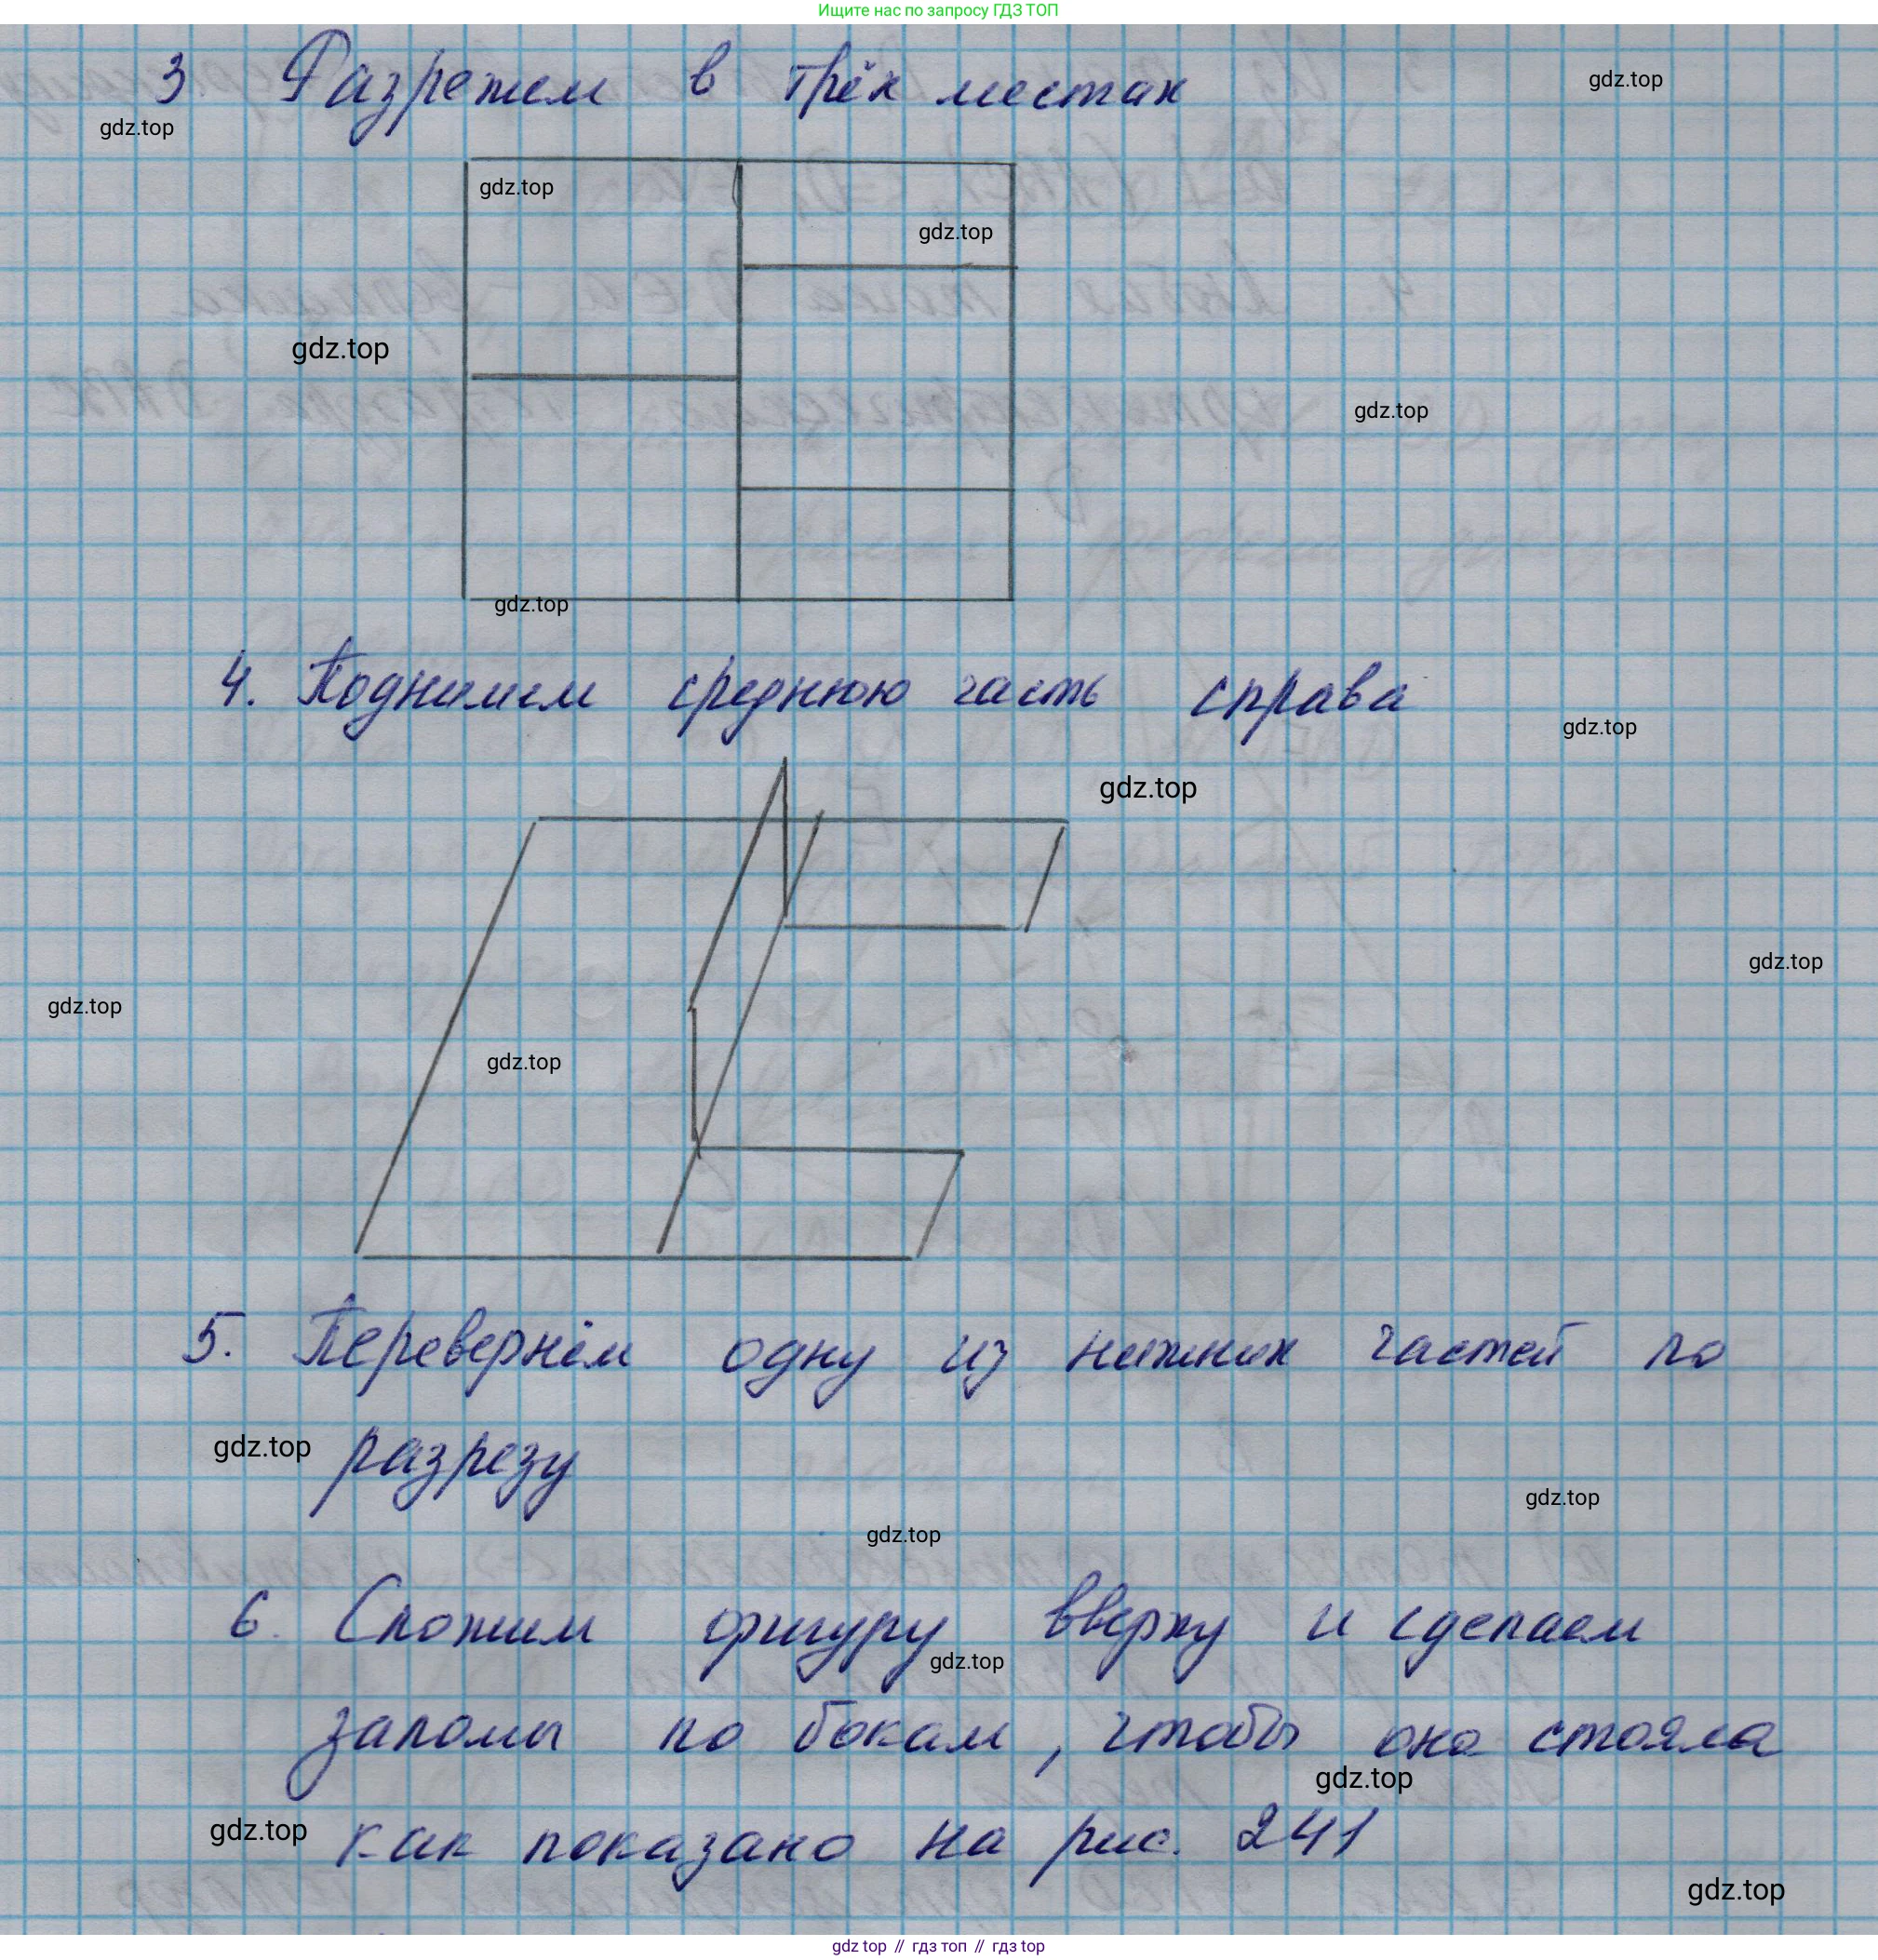 Ищите нас по запросу ГДЗ ТОП
3. Разрежем в трёх местах
gdz.top
gdz.top
gdz.top
gdz.top
gdz.top
gdz.top
gdz.top
4. Поднимем среднюю часть справа
gdz.top
gdz.top
gdz.top
gdz.top
gdz.top
5. Перевернём одну из нижних частей по
gdz.top разрезу
gdz.top
gdz.top
6. Сложим фигуру вверху и сделаем
gdz.top
заломы по бокам, чтобы она стояла
gdz.top
gdz.top как показано на рис. 241
gdz.top
gdz top // гдз топ // гдз top